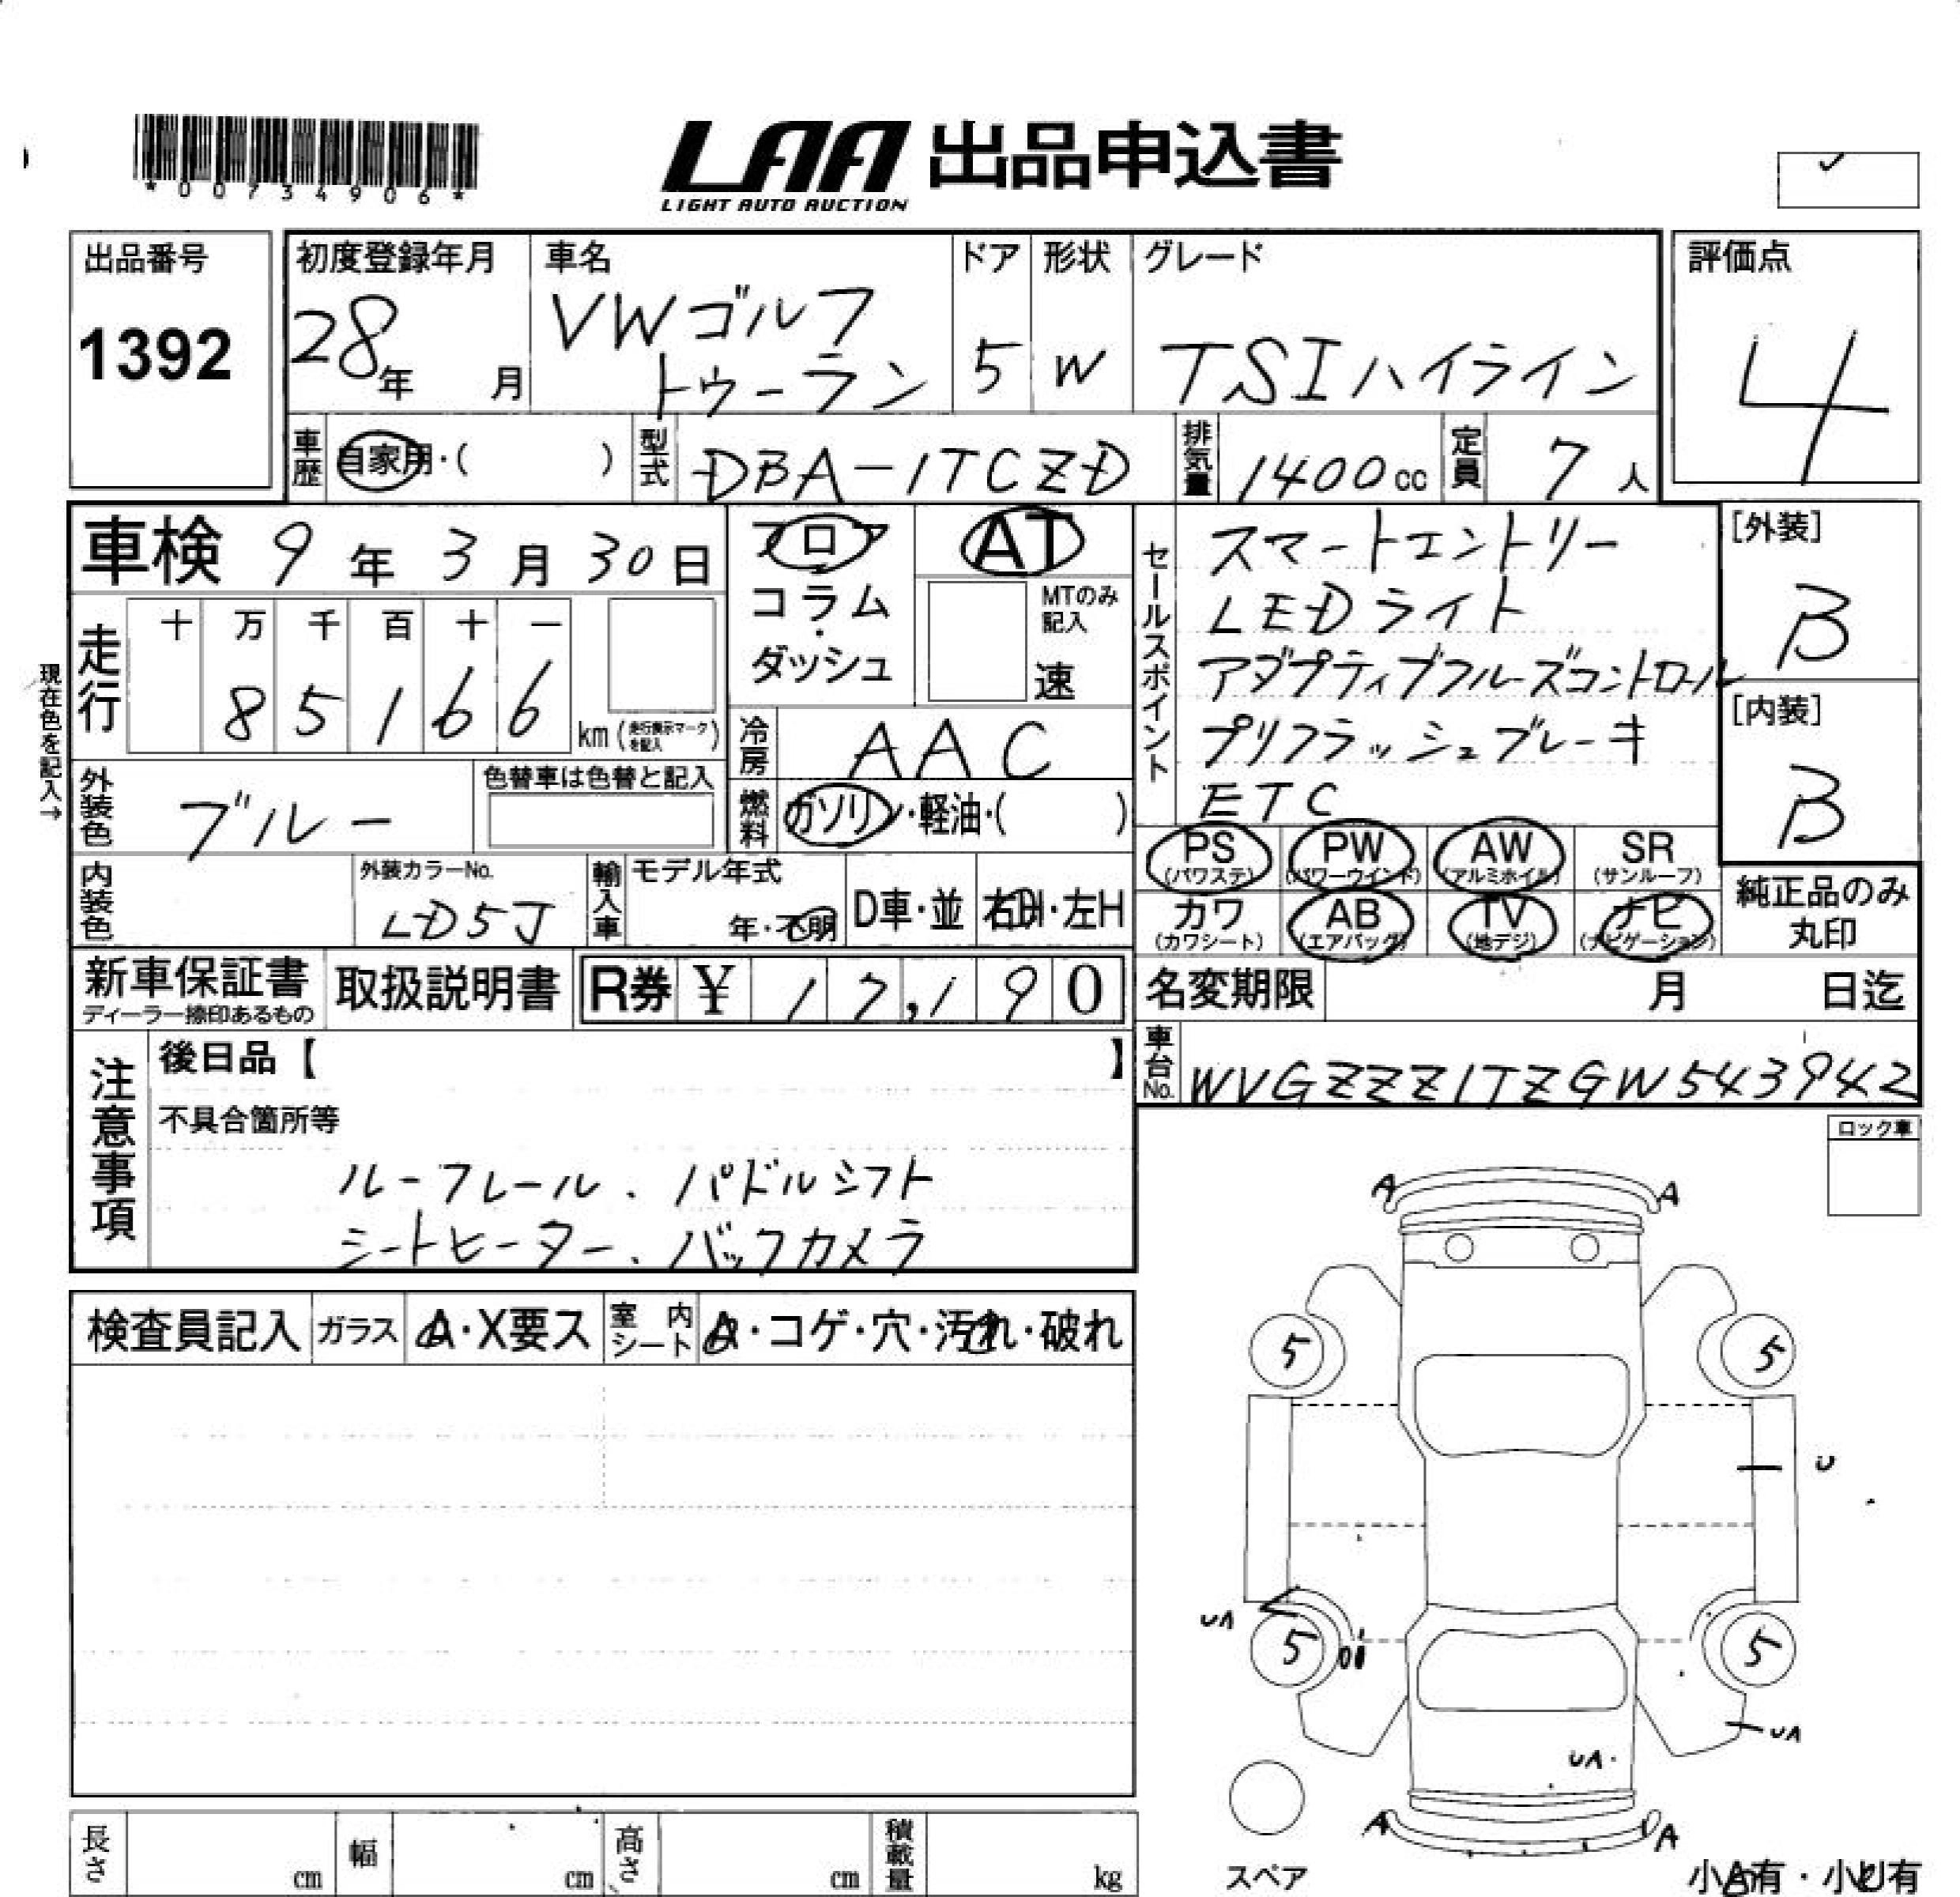 *00734906*
LAA 出品申込書
LIGHT AUTO AUCTION
出品番号
1392
初度登録年月
28年 月
車名
VWゴルフ
トゥーラン
ドア
5
形状
W
グレード
TSIハイライン
評価点
4
車歴 自家用・( )
型式 DBA-1TCZD
排気量 1400cc
定員 7人
車検 9年3月30日
フロア
コラム
・
ダッシュ
AT
MTのみ
記入
速
セールスポイント
スマートエントリー
LEDライト
アダプティブクルーズコントロール
プリクラッシュブレーキ
ETC
[外装]
B
[内装]
B
現在色を記入→
走行
十 万 千 百 十 一
8 5 1 6 6 km(走行表示マークを記入)
冷房 AAC
外装色 ブルー
色替車は色替と記入
燃料 ガソリン・軽油・( )
内装色
外装カラーNo.
LD5J
輸入車
モデル年式
年・不明
D車・並
右H・左H
PS (パワステ)
PW (パワーウインド)
AW (アルミホイル)
SR (サンルーフ)
カワ (カワシート)
AB (エアバッグ)
TV (地デジ)
ナビ (ナビゲーション)
純正品のみ
丸印
新車保証書
ディーラー捺印あるもの
取扱説明書
R券 ¥ 17,190
名変期限 月 日迄
車台No. WVGZZZ1TZGW543942
注意事項
後日品【 】
不具合箇所等
ルーフレール.パドルシフト
シートヒーター.バックカメラ
ロック車
検査員記入 ガラス A・X要ス 室内シート A・コゲ・穴・汚れ・破れ
A A
5 5
U
UA
5 5
UA
UA
A UA
スペア
小A有・小U有
長さ cm 幅 cm 高さ cm 積載量 kg